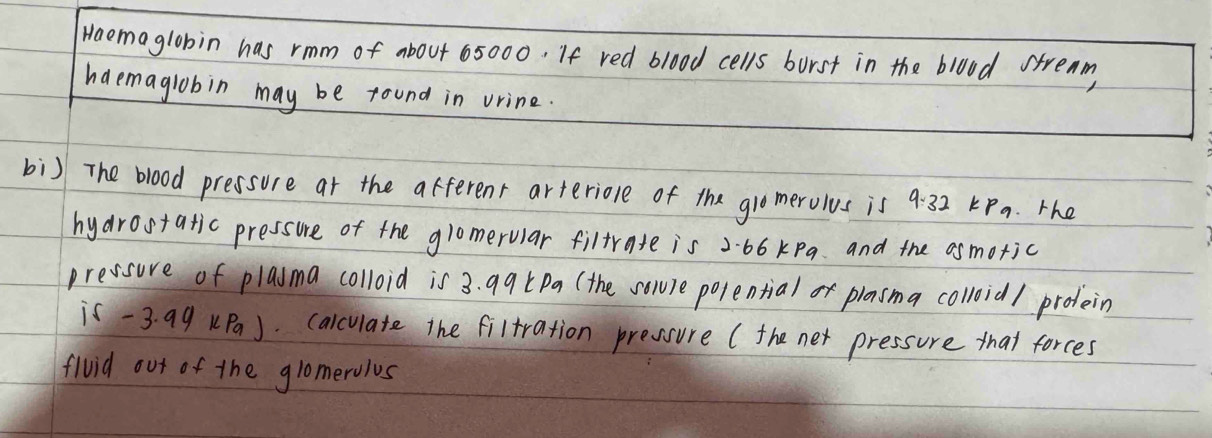 Haemaglobin has rmm of about 65000. If red blood cells burst in the blood stream,
haemaglobin may be found in urine.
bi) The blood pressure at the afferent arteriole of the glomerulus is 9.32 kPa. the
hydrostatic pressure of the glomerular filtrate is 2.66 kPa. and the osmotic
pressure of plasma colloid is 3.99 kPa (the solute potential of plasma colloid/protein
is -3.99 kPa). Calculate the filtration pressure (the net pressure that forces
fluid out of the glomerulus